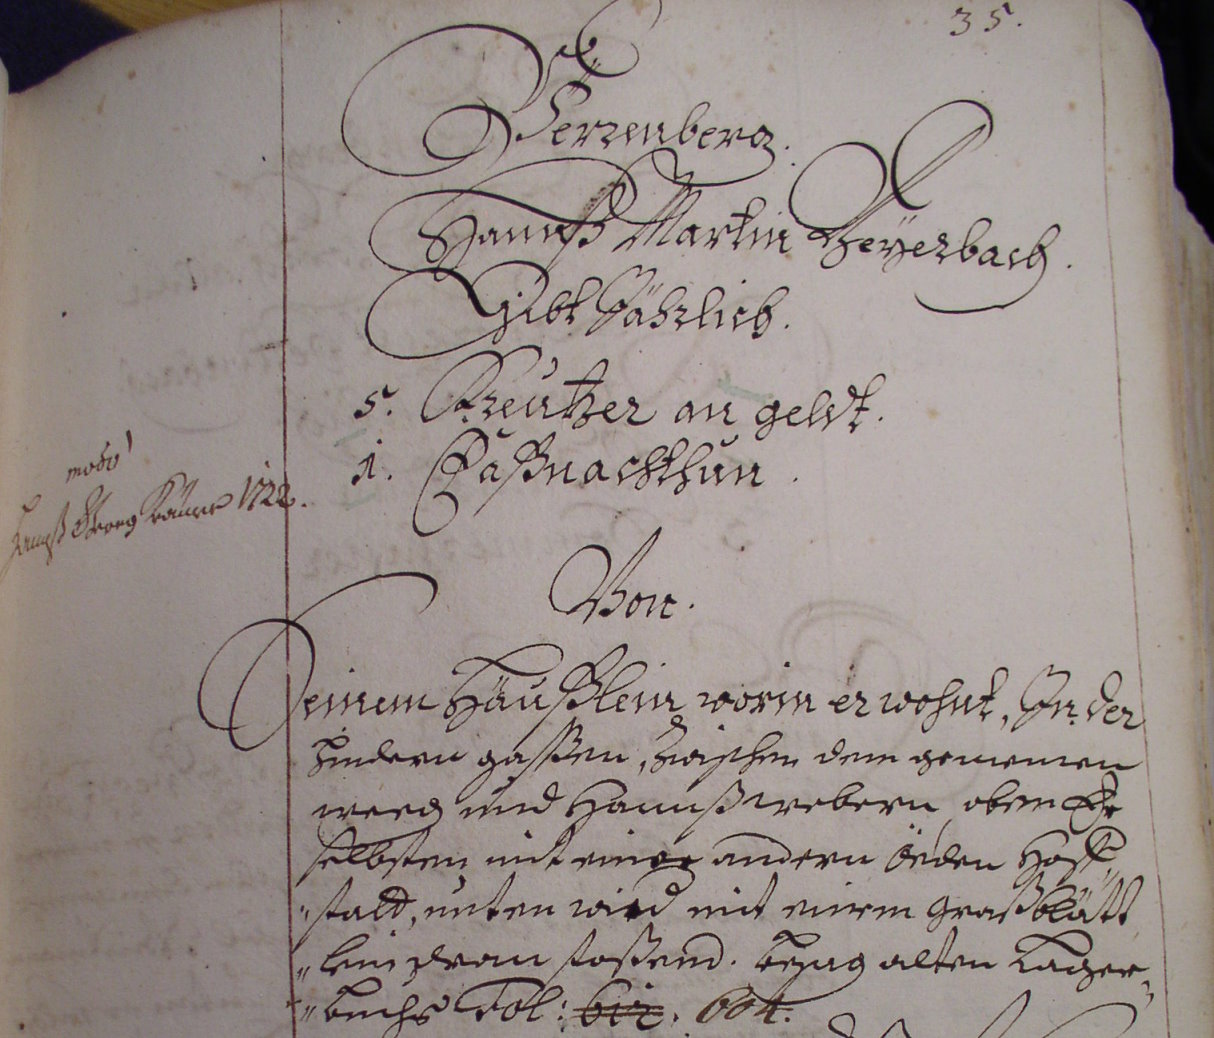 35.
Sterzenberg.
Hannß Martin Beÿerbach.
Gibt Jährlich.
5. Kreutzer an geldt.
1. Faßnachthun.
modo
Hannß Georg 1722.
Von.
Seinem Häußlein worin er wohnt, In der
hindern gassen, Zwischen dem gemeinen
weeg und Hannß webern, oben Er
selbsten mit einer andern öeden Hoff-
"statt, unten wird mit einem Graßblätt
"lein dran stossend. besag alten Lager-
"buchs Fol: 604.